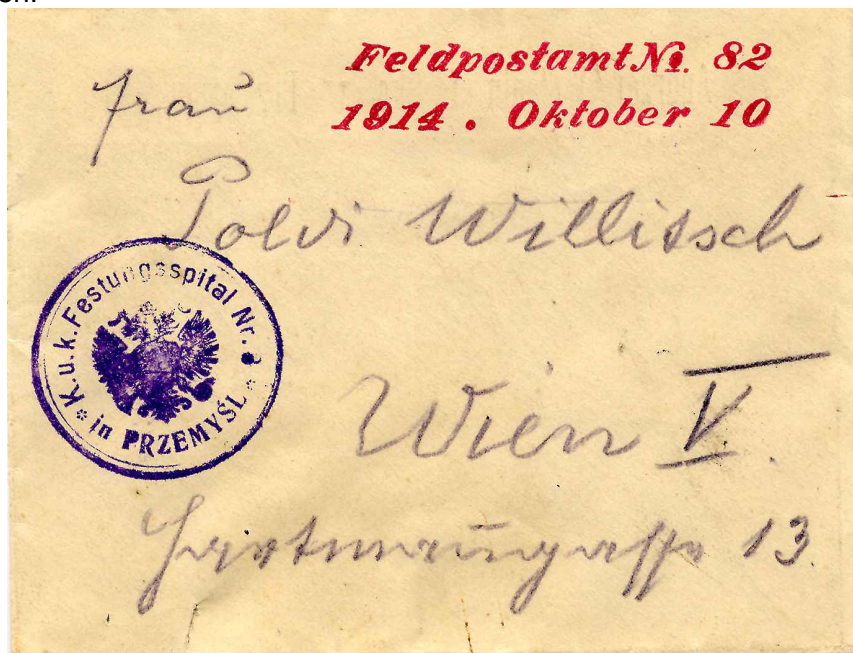 Feldpostamt No. 82
1914 . Oktober 10
Frau
Poldi Willitsch
K.u.k. Festungsspital Nr.
in PRZEMYŚL
Wien V.
Hartmanngasse 13.